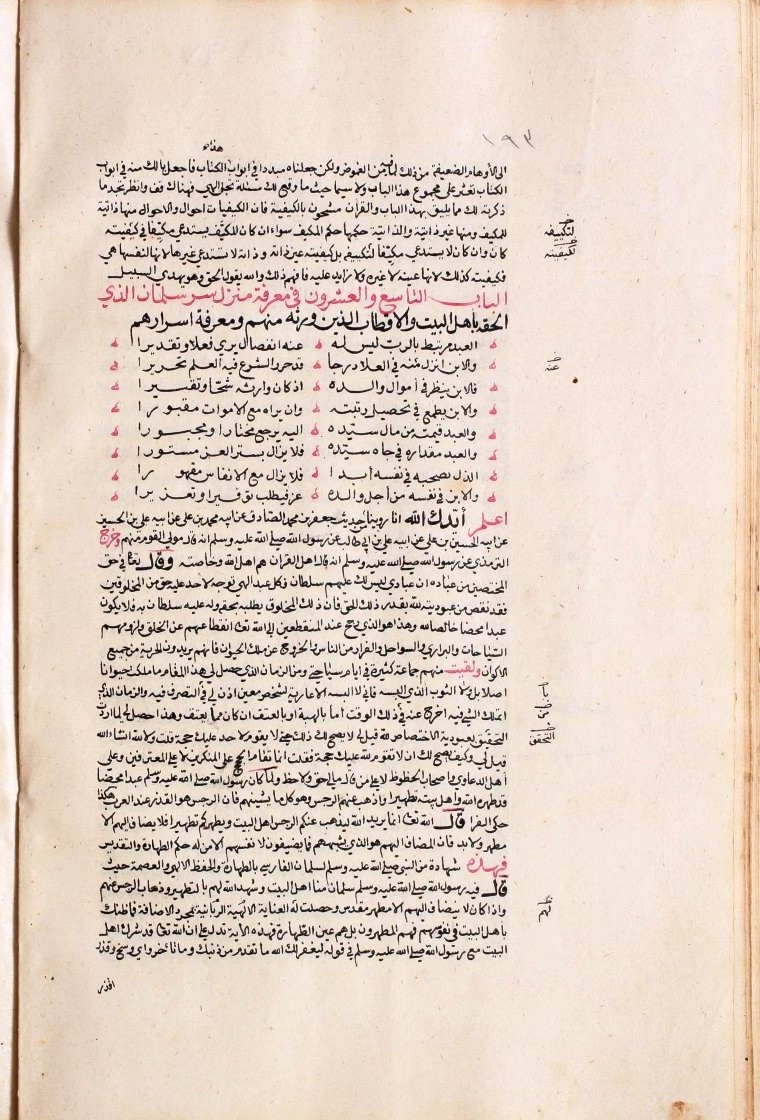 ١٩٣
الى الأوهام الضعيفة من ذلك لما فيه من الغموض ولكن جعلناه مبددا في ابواب الكتاب فاجعل بالك منه في ابواب
الكتاب تعثر على مجموع هذا الباب ولا سيما حيث ما وقع لك مسئلة تجل الهي فهناك قف وانظر تجد ما
ذكرته لك مما يليق بهذا الباب والقران مشحون بالكيفية فان الكيفيات احوال والاحوال منها ذاتية
للمكيف ومنها غير ذاتية والذاتية حكمها حكم المكيف سواء ان كان للتكيف يستدعي مكيفا في كيفيته
كان وان كان لا يستدعي مكيفا لتكييفه بل كيفيته عين ذاته وذاته لا تستدعي غيرها لانها لنفسها هي
فكيفيته كذلك لانها عينه لا غيره ولا زايد عليه فافهم ذلك والله يقول الحق وهو يهدي السبيل
الباب التاسع والعشرون في معرفة منزل سر سلمان الذي
الحقه بأهل البيت والاقطاب الذين ورثه منهم ومعرفة اسرارهم
العبد مرتبط بالرب ليس له عنه انفصال يري فعلا وتقديرا
والابن انزل منه في العلا درجا قد حرر الشرع فيه العلم تحريرا
فالابن ينظر في أموال والده اذ كان وارثه شحا وتقتيرا
والابن يطمع في تحصيل رتبته وان يراه مع الاموات مقبورا
والعبد قيمته من مال سيده اليه يرجع مختارا ومجبورا
والعبد مقداره في جاه سيده فلا يزال بستر العز مستورا
الذل يصحبه في نفسه أبدا فلا يزال مع الانفاس مقهورا
والابن في نفسه من أجل والده عز فيطلب توقيرا وتعزيرا
اعلم أيدك الله انا روينا من حديث جعفر بن محمد الصادق عن ابيه محمد بن علي عن ابيه علي بن الحسين
عن ابيه الحسين بن علي عن ابيه علي بن ابي طالب عن رسول الله صلى الله عليه وسلم انه قال مولى القوم منهم وخرج
الترمذي عن رسول الله صلى الله عليه وسلم انه قال اهل القران هم اهل الله وخاصته وقال تعالى في حق
المختصين من عباده ان عبادي ليس لك عليهم سلطان فكل عبد الهي توجه لاحد عليه حق من المخلوقين
فقد نقص من عبوديته لله بقدر ذلك الحق فان ذلك المخلوق يطلبه بحقه وله عليه سلطان به فلا يكون
عبدا محضا خالصا لله وهذا هو الذي رجح عند المنقطعين الى الله تعالى انقطاعهم عن الخلق ولزومهم
السياحات والبراري والسواحل والفرار من الناس والخروج عن ملك الحيوان فانهم يريدون الحرية من جميع
الاكوان ولقيت منهم جماعة كثيرة في ايام سياحتي ومن الزمان الذي حصل لي هذا المقام ما ملكت حيوانا
اصلا بل ولا الثوب الذي البسه فاني لا البسه الا عارية لشخص معين اذن لي في التصرف فيه والزمان الذي
اتملك الشيء فيه اخرج عنه في ذلك الوقت أما بالهبة او بالعتق ان كان مما يعتق وهذا حصل لي لما اردت
التحقق بعبودية الاختصاص لله قيل لي لا يصح لك ذلك حتى لا يقوم لاحد عليك حجة قلت ولا لله ان شاء الله
قيل لي وكيف يصح لك ان لا تقوم لله عليك حجة فقلت انما تقام الحجج على المنكرين لا على المعترفين وعلى
أهل الدعاوي واصحاب الحظوظ لا على من قال ما لي حق ولا حظ ولما كان رسول الله صلى الله عليه وسلم عبدا محضا
قد طهره الله واهل بيته تطهيرا واذهب عنهم الرجس وهو كل ما يشينهم فان الرجس هو القذر عند العرب هكذا
حكى الفرا قال الله تعالى انما يريد الله ليذهب عنكم الرجس اهل البيت ويطهركم تطهيرا فلا يضاف اليهم الا
مطهر ولابد فان المضاف اليهم هو الذي يشبههم فما يضيفون لانفسهم الا من له حكم الطهارة والتقديس
فهذه شهادة من النبي صلى الله عليه وسلم لسلمان الفارسي بالطهارة والحفظ الالهي والعصمة حيث
قال فيه رسول الله صلى الله عليه وسلم سلمان منا اهل البيت وشهد الله لهم بالتطهير وذهاب الرجس عنهم
واذا كان لا ينضاف اليهم الا مطهر مقدس وحصلت له العناية الالهية الربانية بمجرد الاضافة فما ظنك
باهل البيت في نفوسهم فهم المطهرون بل هم عين الطهارة فهذه الآية تدل على ان الله تعالى قد شرك اهل
البيت مع رسول الله صلى الله عليه وسلم في قوله ليغفر لك الله ما تقدم من ذنبك وما تأخر واي وسخ وقذر
اقذر
لتكييفه
لكيفيته
عنه
التحقق
لهم